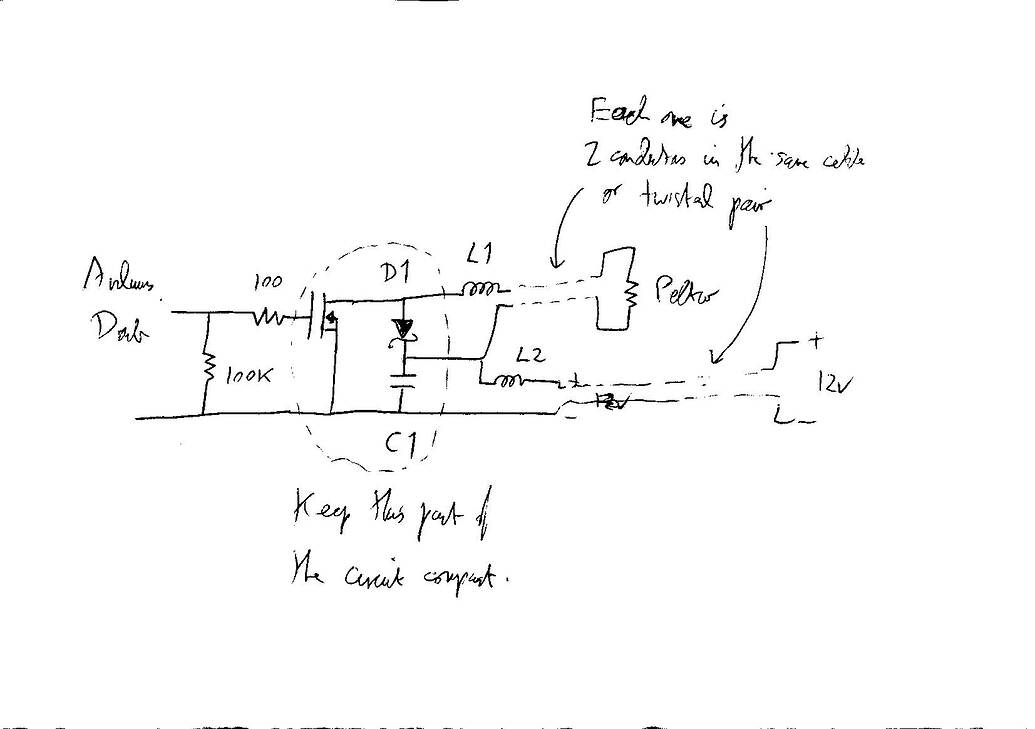 Each one is
2 conductors in the same cable
or twisted pair
L1
D1
100
Peltier
L2
+
100K
+
12V
12V
−
−
C1
Keep this part of
the circuit compact.